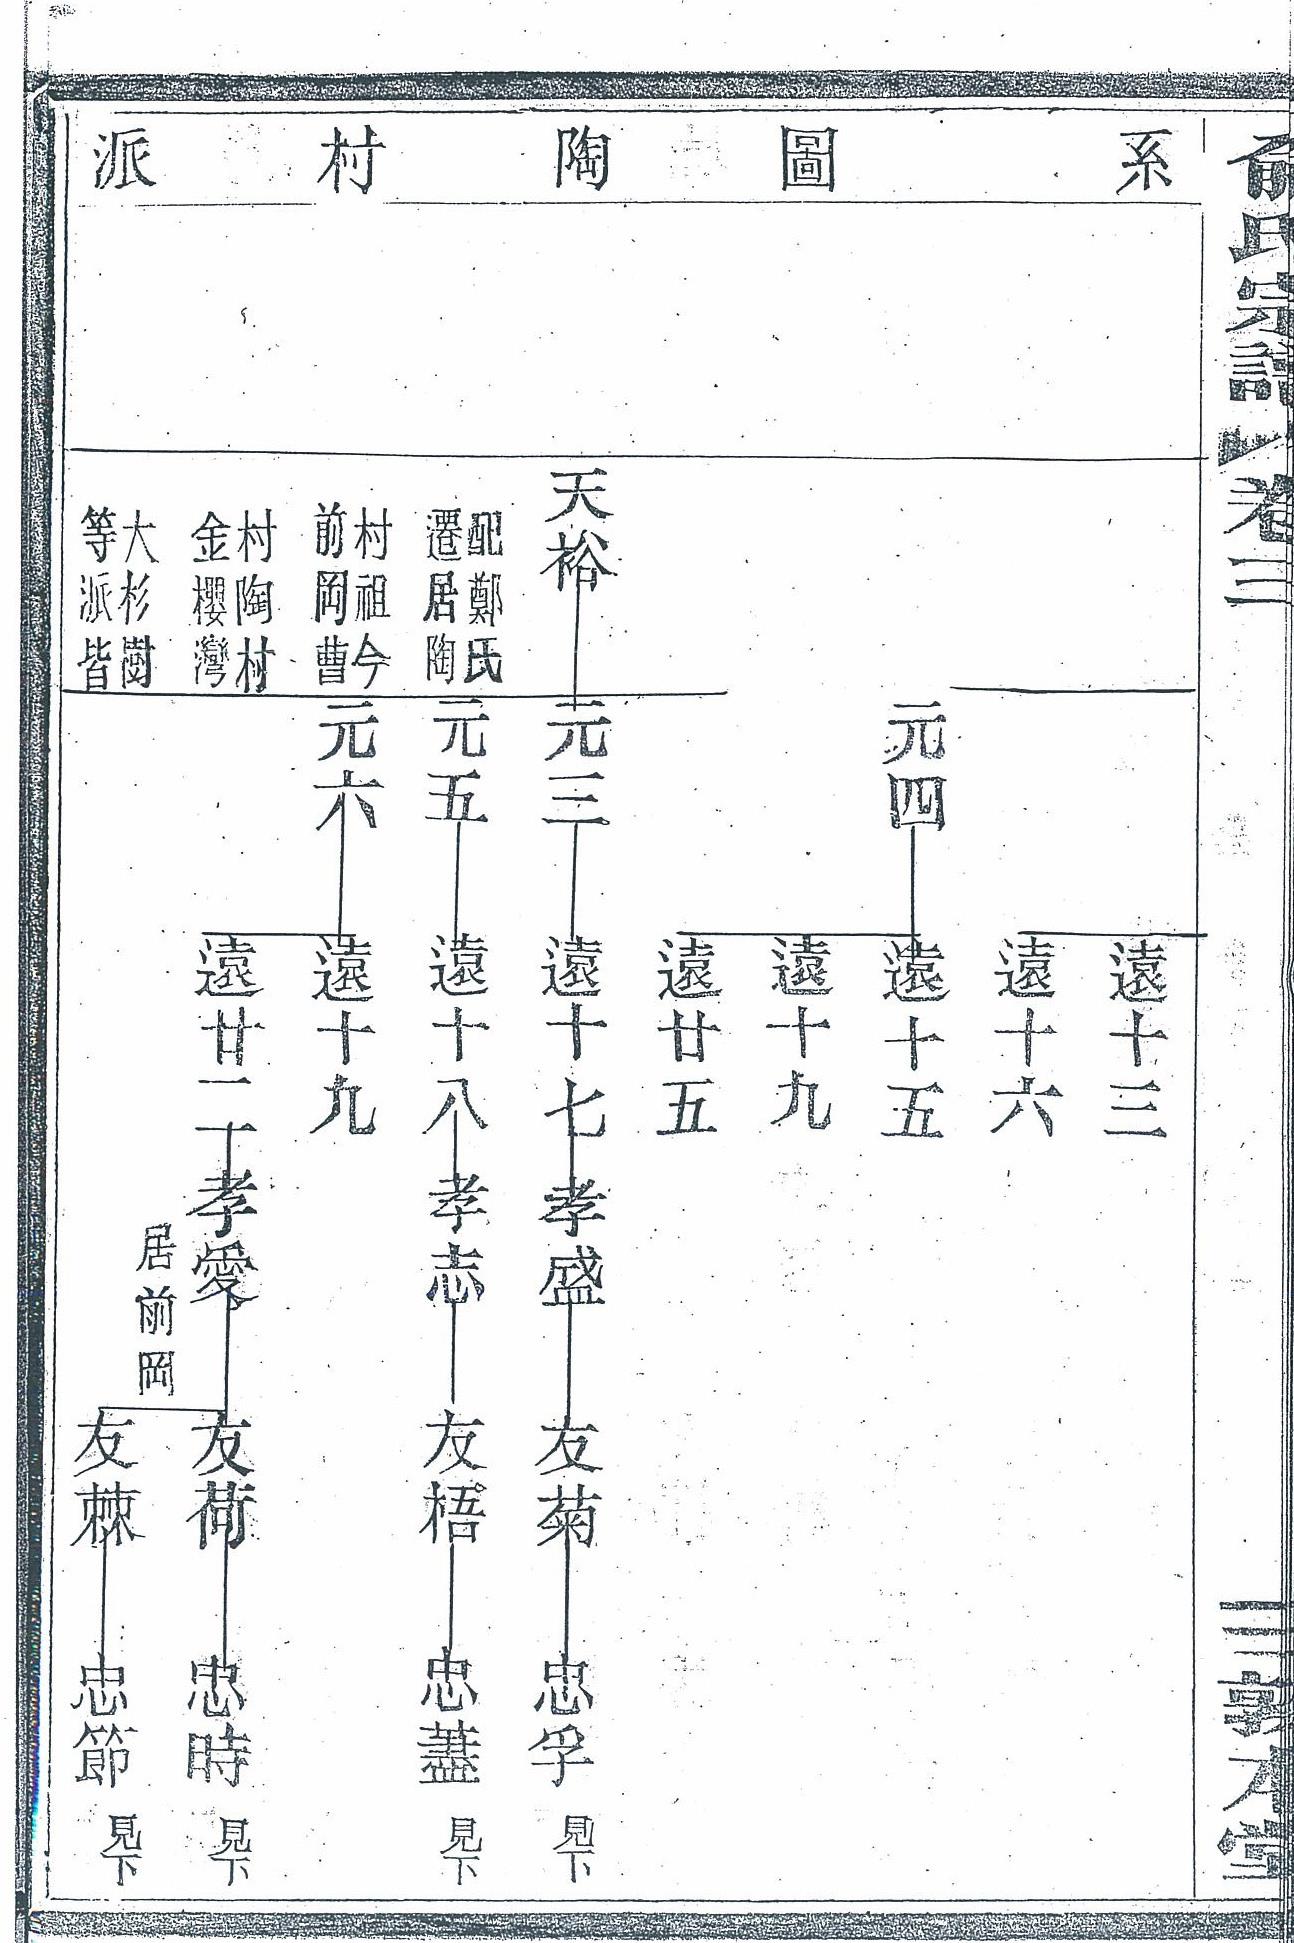 俞氏宗譜 卷三
三 敦本堂
系圖 陶村派
遠十三
遠十六
元四
遠十五
遠十九
遠廿五
天裕
元三
遠十七
孝盛
友菊
忠孚 見下
配鄭氏
遷居陶
村祖今
前岡曹
村陶村
金櫻灣
大杉樹
等派皆
元五
遠十八
孝志
友梧
忠藎 見下
元六
遠十九
遠廿二
孝愛
居前岡
友荷
忠時 見下
友棘
忠節 見下